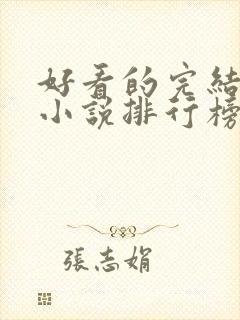 好看的完結
小說排行榜
張志娟